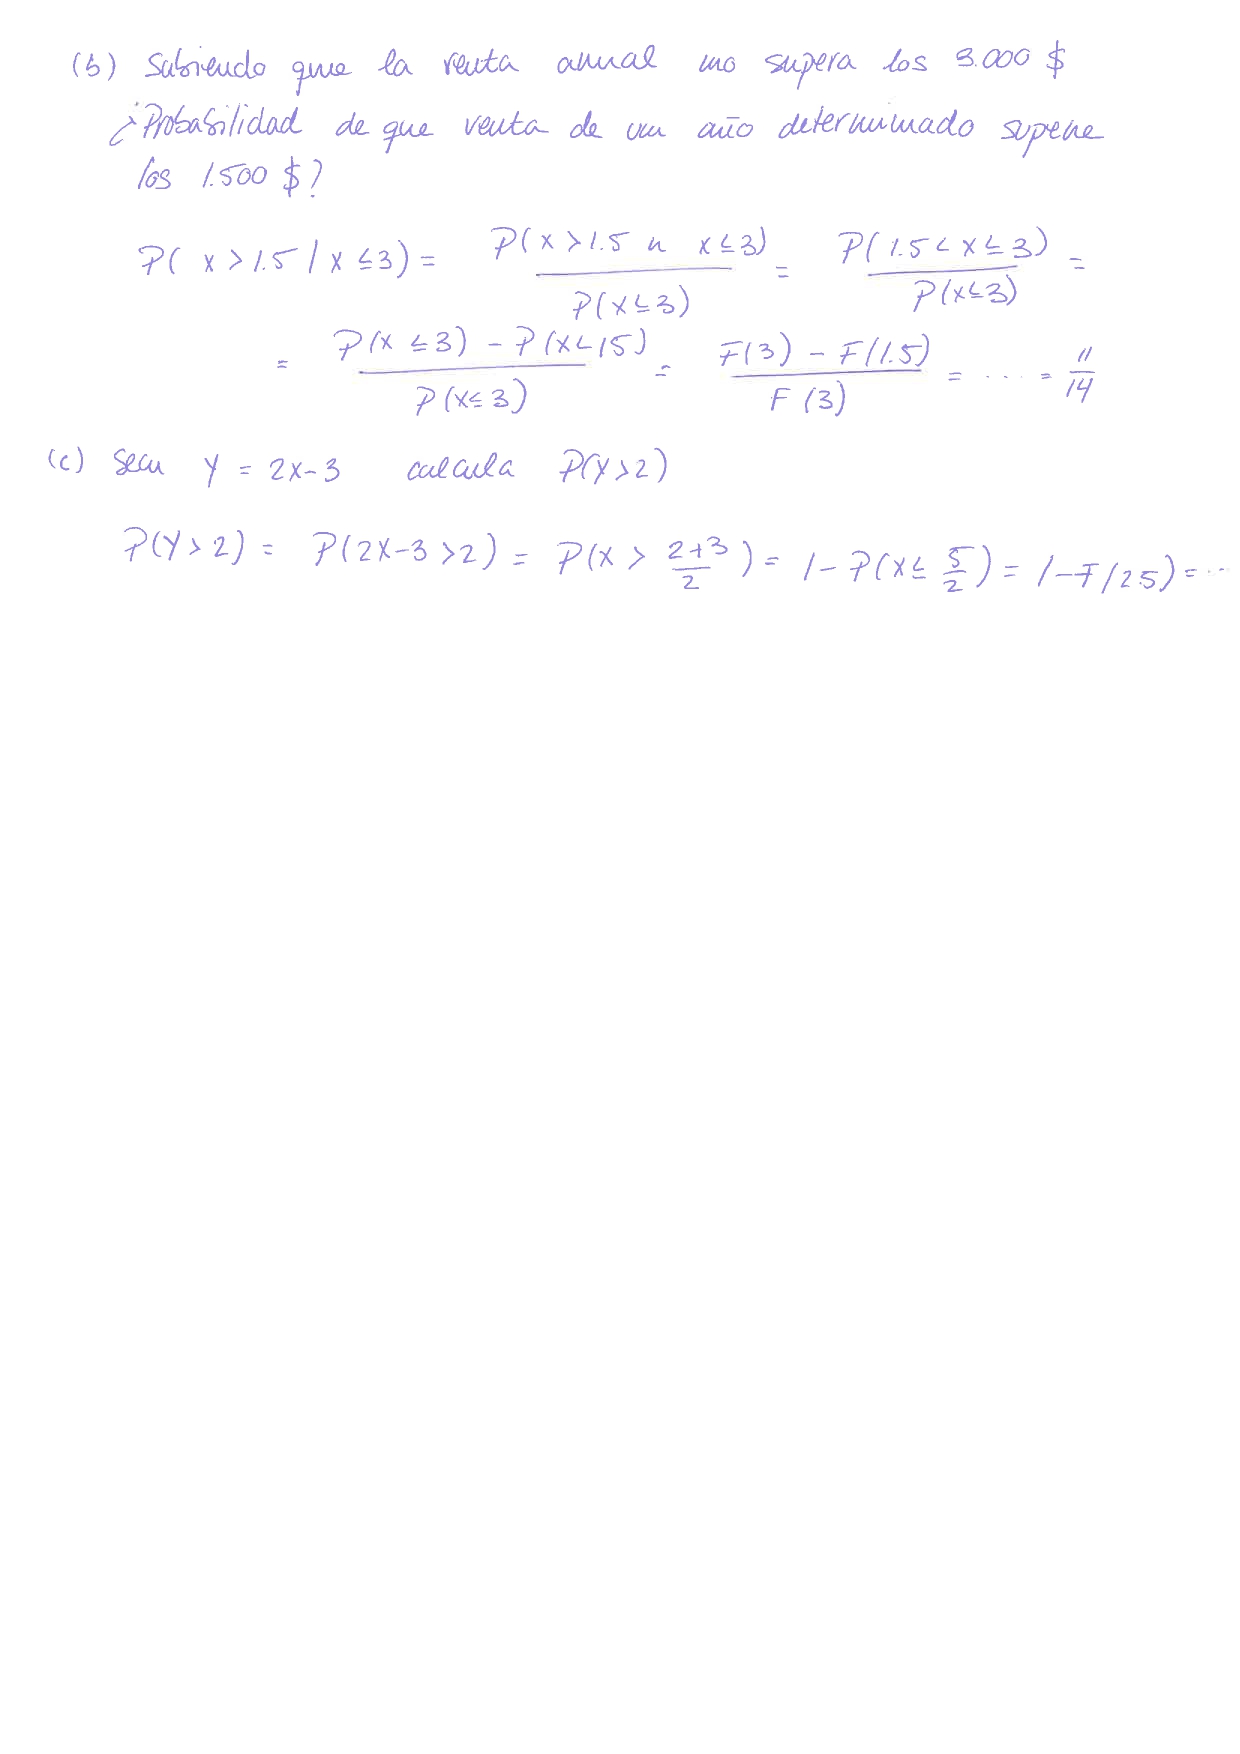 (b) Sabiendo que la renta anual no supera los 3.000 $
¿Probabilidad de que renta de un año determinado supere
los 1.500 $?
P( x > 1.5 / x ≤ 3) = P(x > 1.5 ∩ x ≤ 3) / P(x ≤ 3) = P(1.5 < x ≤ 3) / P(x ≤ 3) =
= P(x ≤ 3) - P(x ≤ 1.5) / P(x ≤ 3) = F(3) - F(1.5) / F(3) = .... = 11/14
(c) Sean Y = 2x-3 calcula P(Y>2)
P(Y>2) = P(2x-3 >2) = P(x > 2+3/2) = 1 - P(x ≤ 5/2) = 1 - F(2.5) = ...